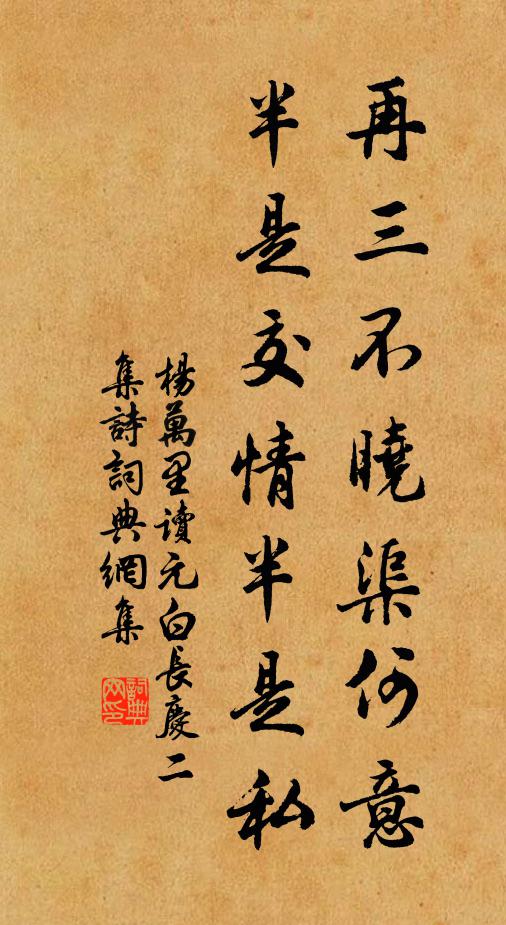 再三不曉渠何意
半是交情半是私
楊萬里讀元白長慶二
集詩詞典網集
詞典
网印